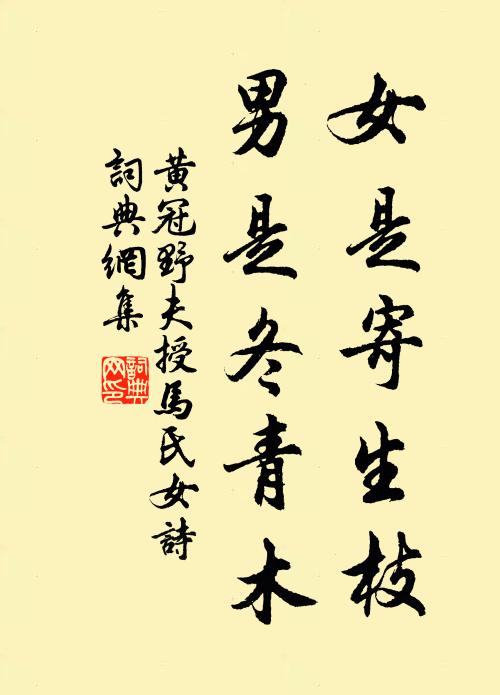 女是寄生枝
男是冬青木
黃冠野夫授馬氏女詩
詞典網集
詞典
网印